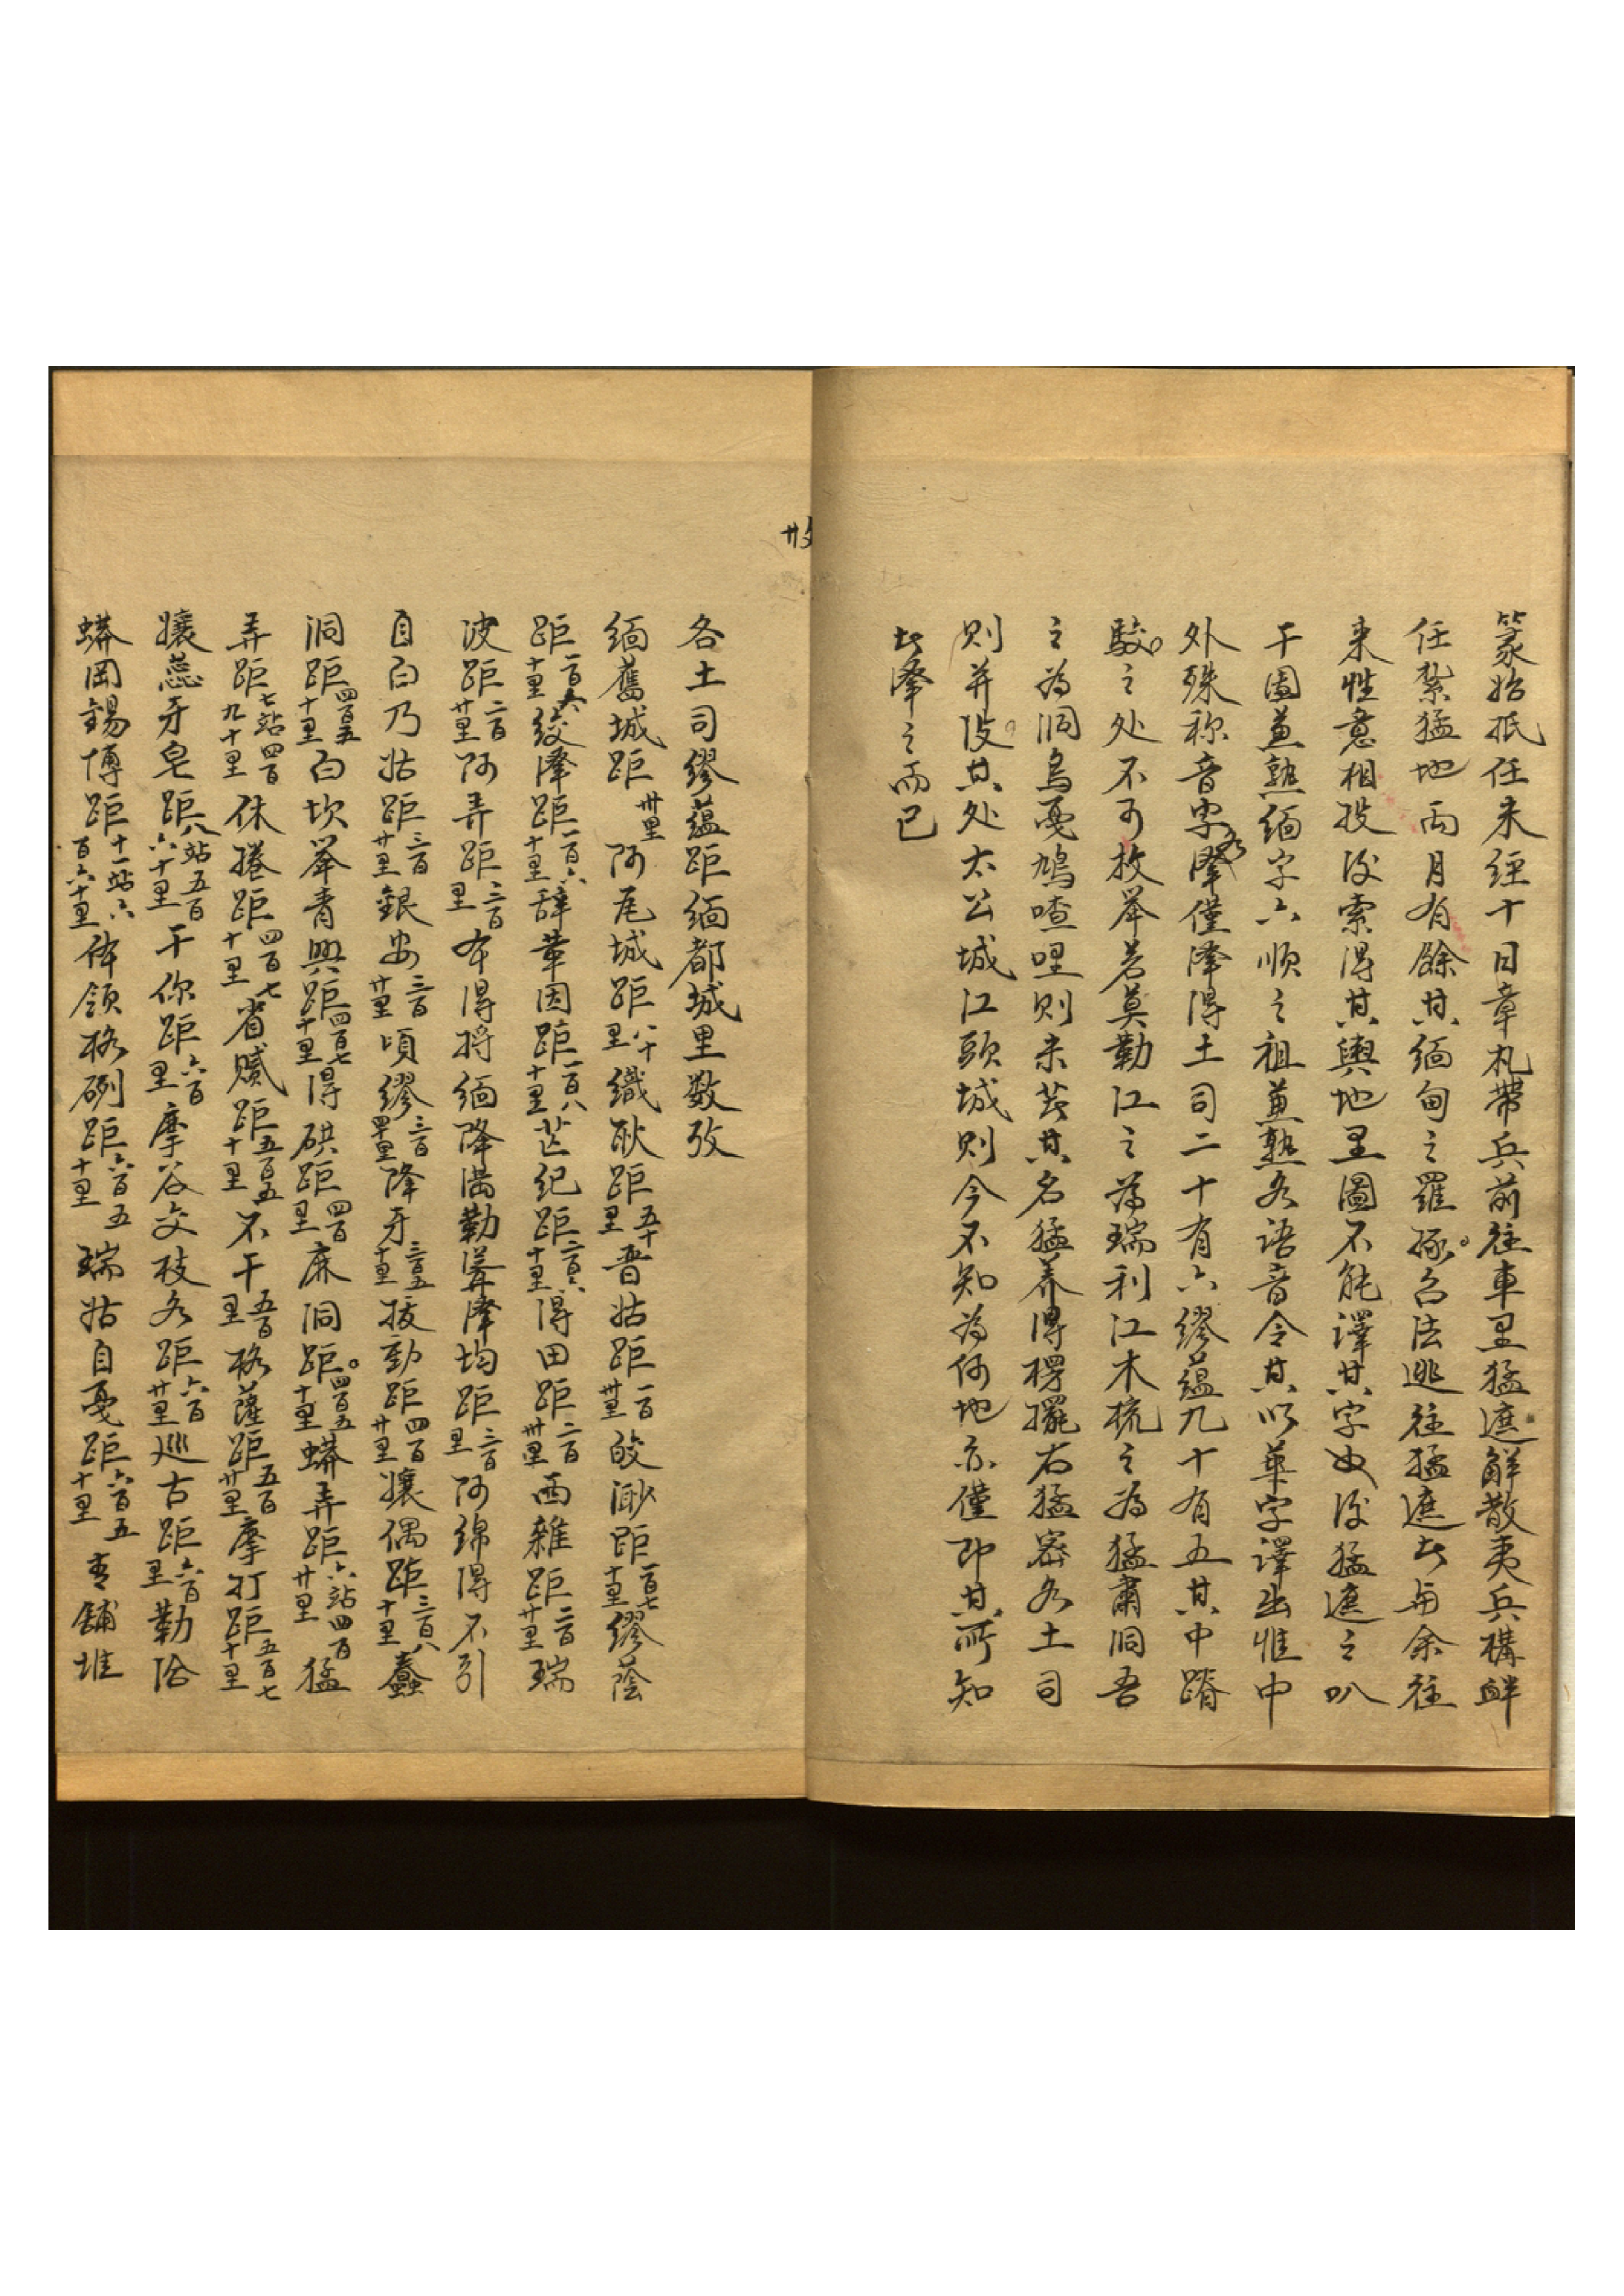 篆始抵任未經十日章札帶兵前往車里猛遮解散夷兵構衅
任紮猛地兩月有餘其緬甸之羅琢名法逃往猛遮者与余往
来性意相投後索得其輿地里圖不能譯其字也後猛遮之叭
干圖兼熟緬字六順之祖兼熟各語音令其以華字譯出惟中
外殊称音字各降僅降得土司二十有六繆蕴九十有五其中踳
駮之处不可枚举若莫勒江之為瑞利江木梳之為猛肅洞吾
之為洞烏戛鳩喳哩則未芸其名猛养得楞擺右猛密各土司
則并没其处太公城江頭城則今不知為何地亦僅即其所知
者降之而已
各土司繆蕴距緬都城里数攷
緬舊城距卅里阿尾城距八十里織耿距五十里晋姑距一百卅里皎渺距一百七十里繆蔭
距一百六十里绞降距一百六十里辞華因距一百八十里芒纪距二百六十里得田距二百卅里西雜距二百廿里瑞
波距二百廿里阿弄距三百里布得捋緬降满勒滸降均距三百里阿綿得不引
自白乃姑距三百廿里銀安三百廿里頃繆三百里降牙三百五十里拔勐距四百廿里孃偶距三百八十里蠢
洞距四百五十里白坎举青興距四百七十里得硔距四百里麻洞距四百五十里蟒弄距六站四百廿里猛
弄距七站四百九十里休捲距四百七十里省贜距五百五十里不干五百里格薩距五百廿里摩打距五百七十里
孃蕊牙皂距八站五百六十里干你距六百里摩谷交枝各距六百廿里巡古距六百里勒洽
蟒岡錫博距十一站六百六十里体領格硎距六百五十里瑞姑自戛距六百五十里青舖堆